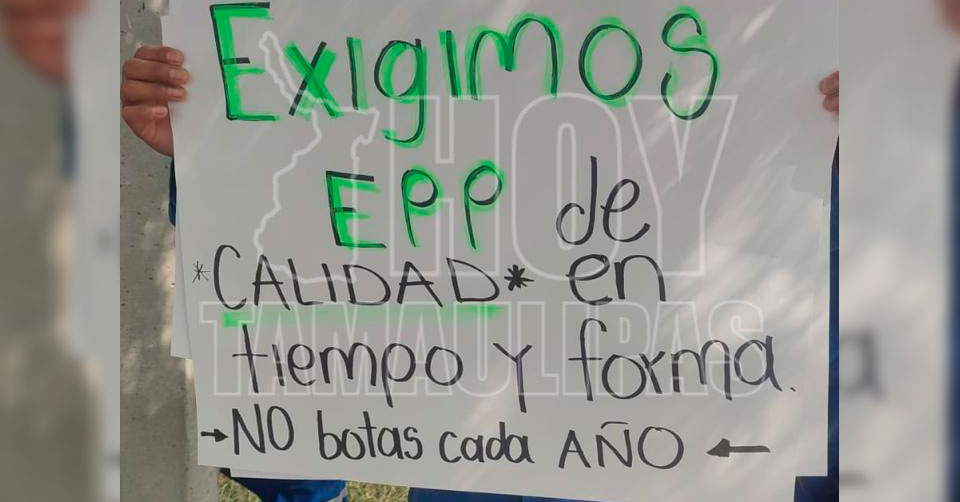 EXIGIMOS
EPP de
*CALIDAD* en
tiempo y forma.
→NO botas cada AÑO ←
HOY
TAMAULIPAS